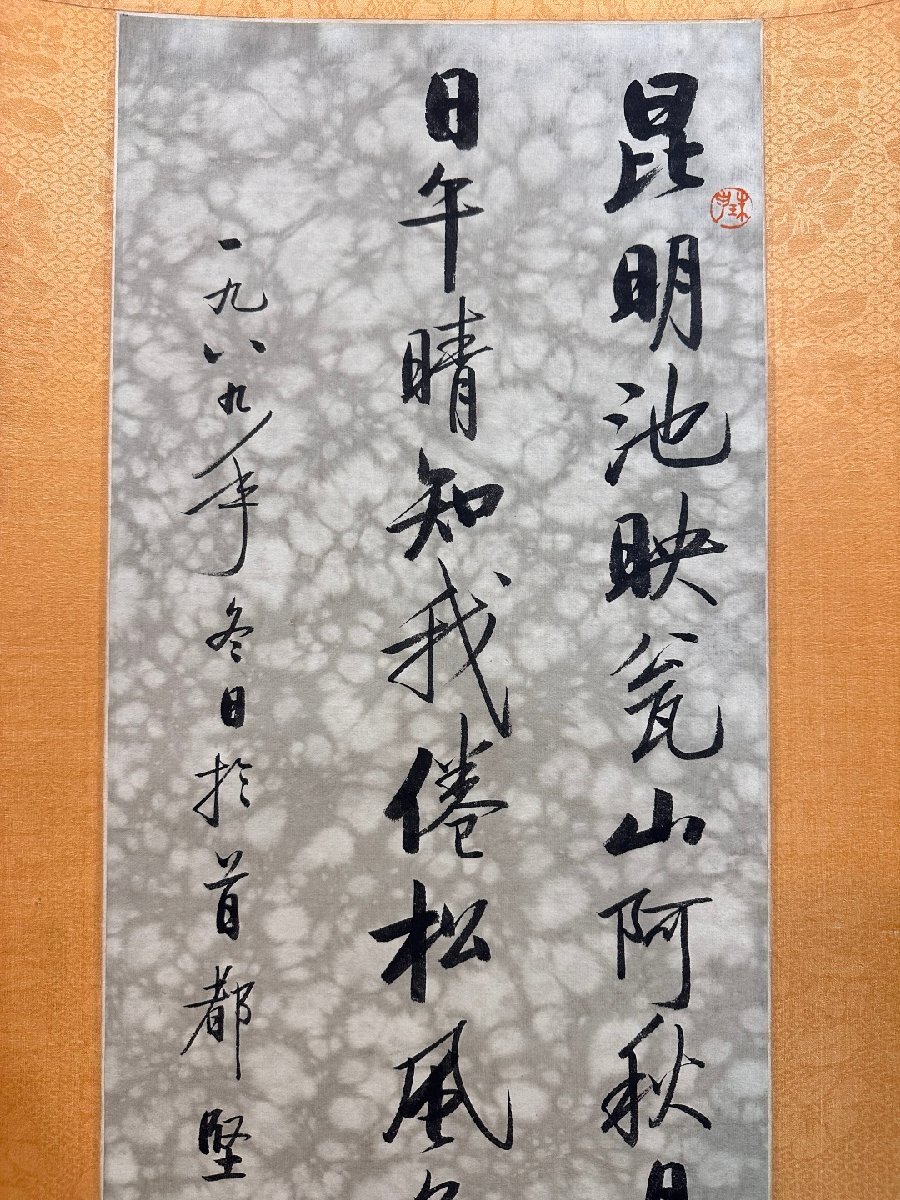 昆明池映瓮山阿秋日
日午晴知我倦松风
一九八九年冬日於首都坚